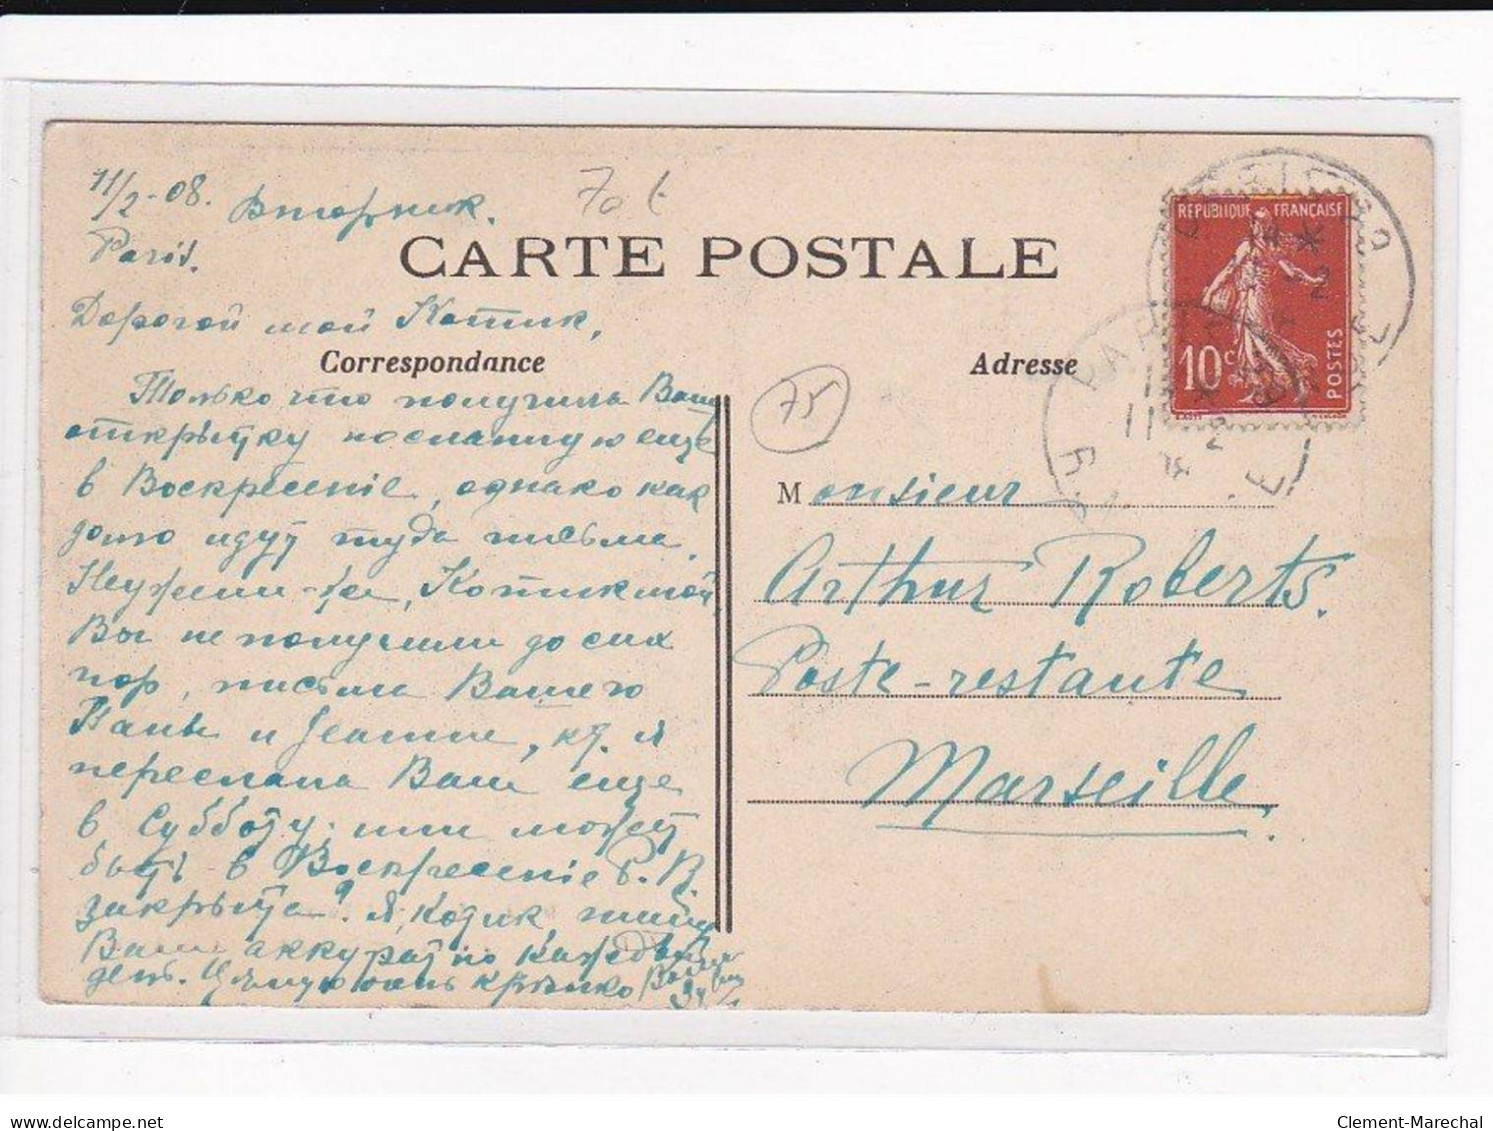 11/2-08. Вторник.
Paris.
70t
CARTE POSTALE
Дорогой мой Котик,
Correspondance
Только что получила Вашу
открытку посланную еще
в Воскресенiе, однако как
долго идут туда письма.
Неужели-же, Котик мой,
Вы не получили до сих
пор, письма Вашего
Вани и Jeanne, кд. я
переслала Вам еще
в Субботу; или может
быть в Воскресенiе P. R.
закрыта? Я, Котик, пишу
Вам аккуратно каждый
день. Цѣлую очень крѣпко
Adresse
75
REPUBLIQUE FRANÇAISE
10c POSTES
PARIS
Monsieur
Arthur Roberts.
Poste-restante
Marseille.
delcampe.net
Clement-Marechal